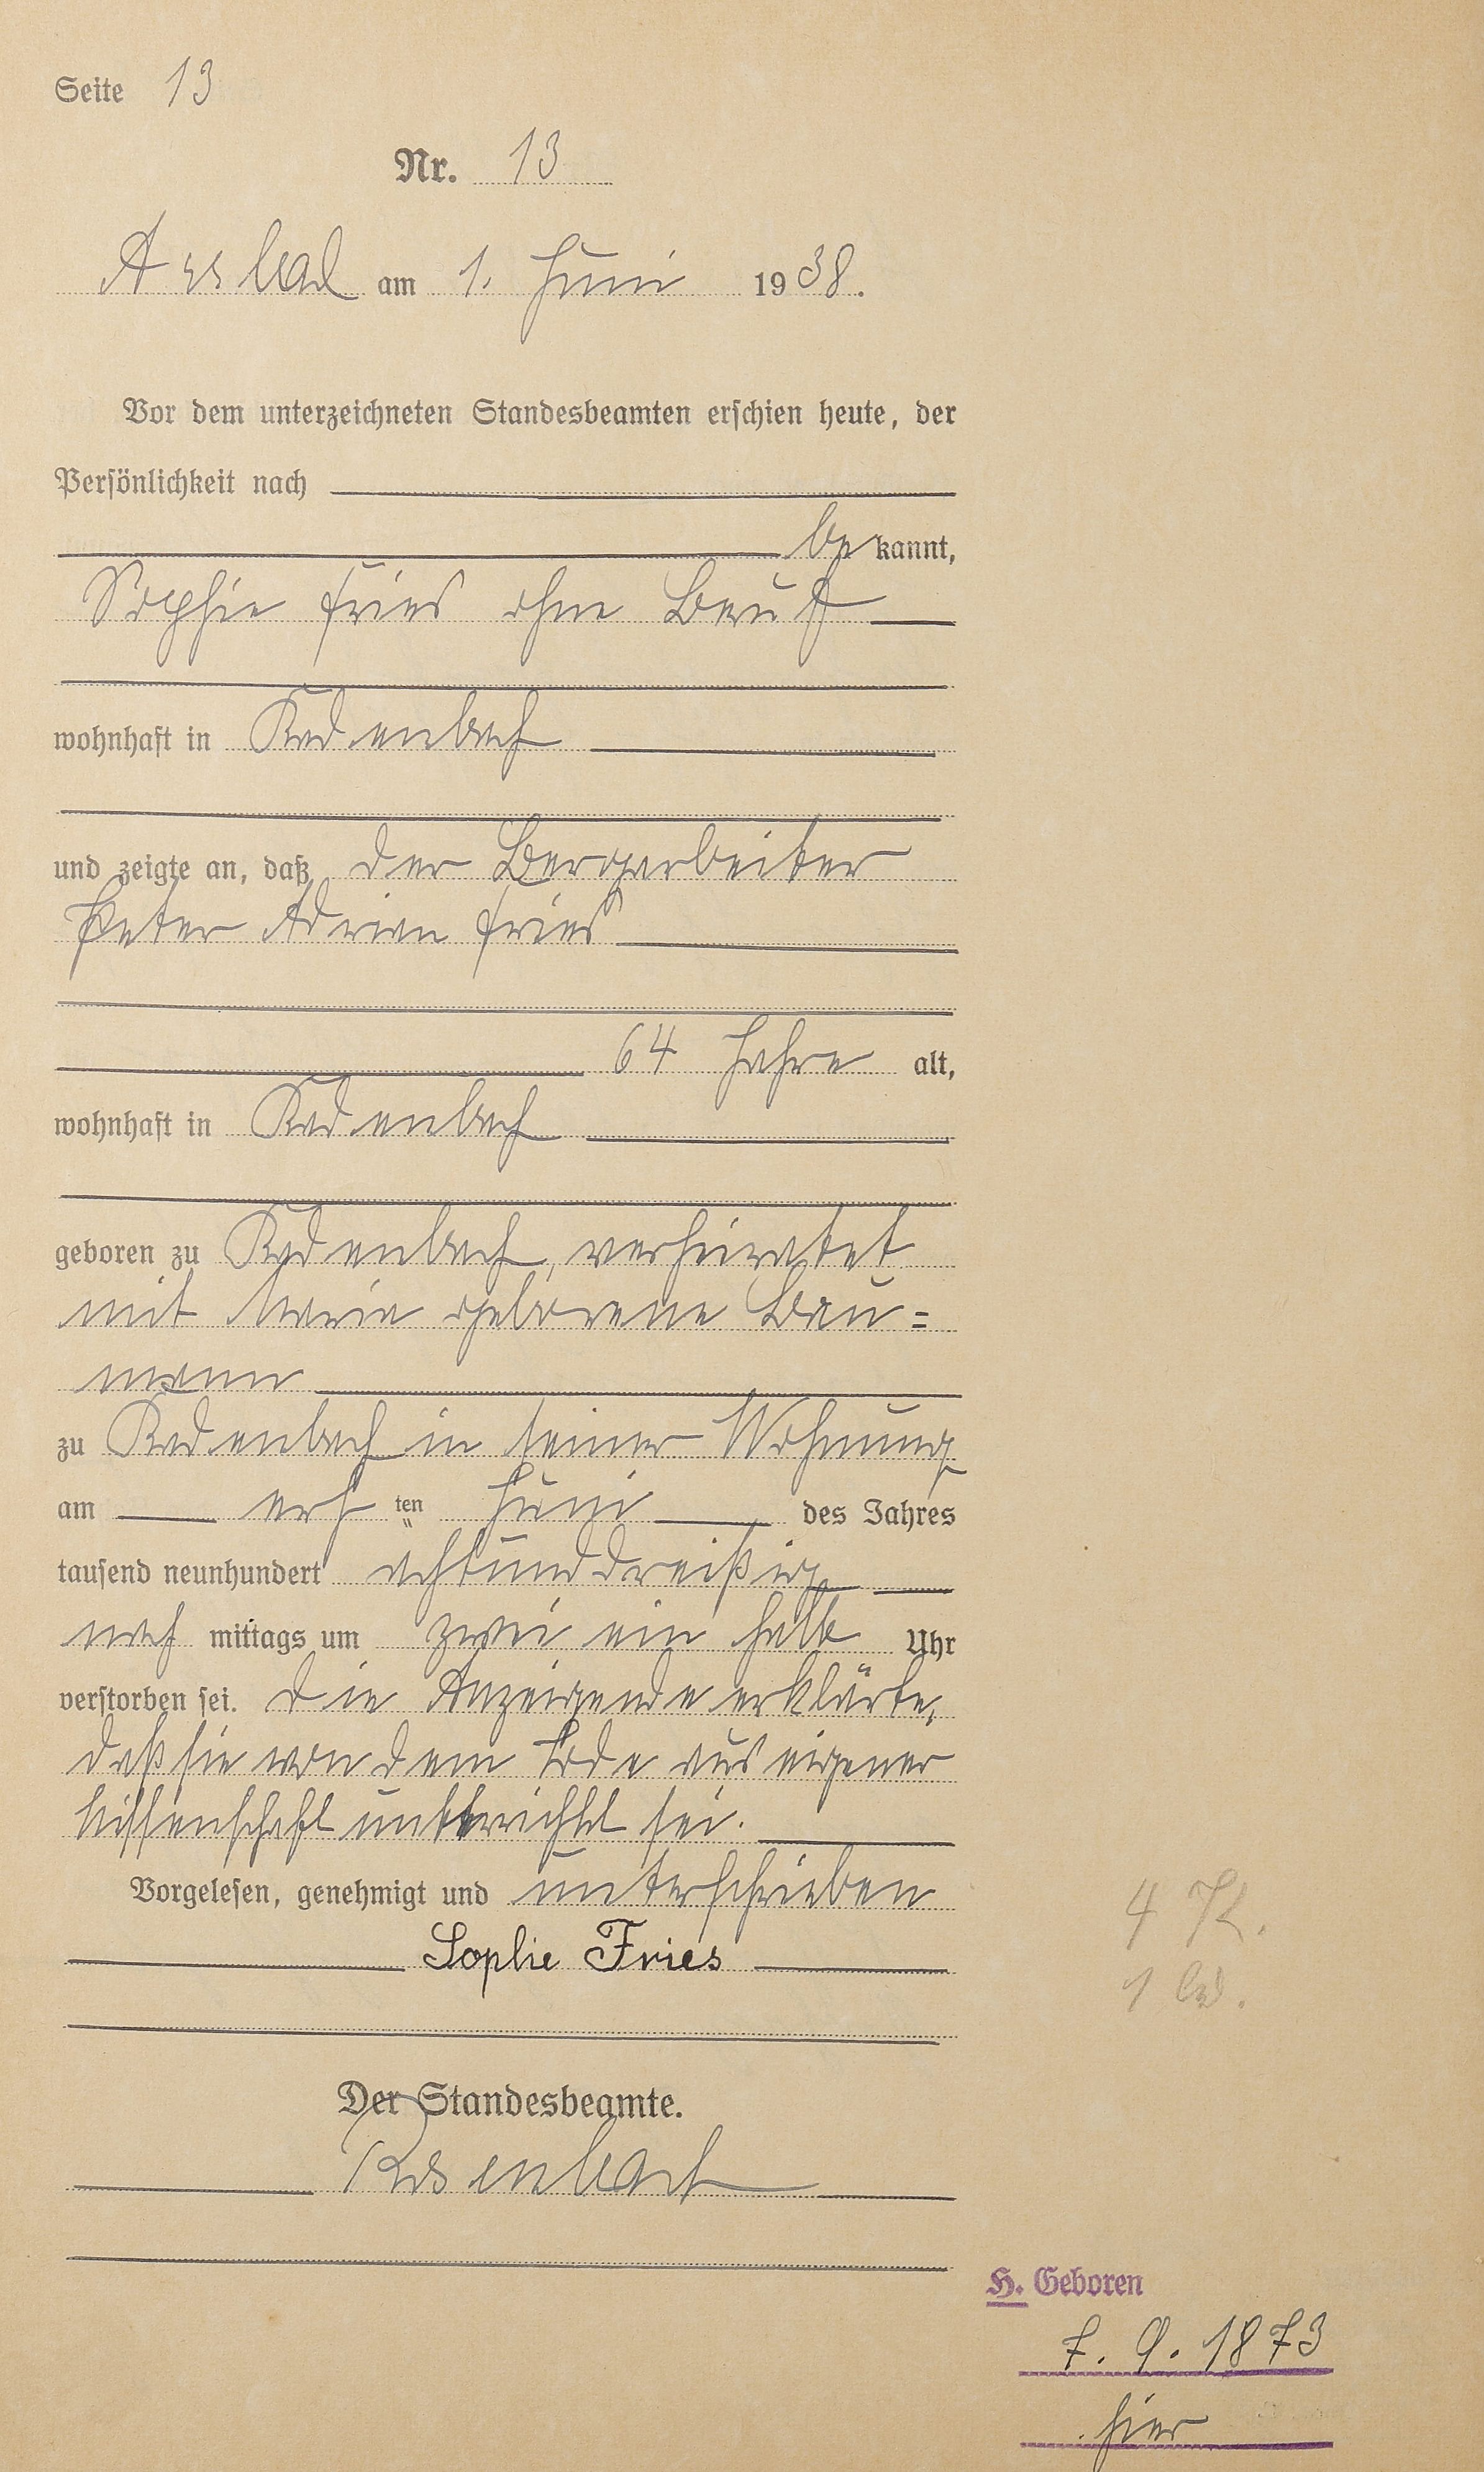 Seite 13
Nr. 13
am 1. Juni 1938.
Vor dem unterzeichneten Standesbeamten erschien heute, der
Persönlichkeit nach
be kannt,
Sophie Fries ohne Beruf
wohnhaft in Radenbach
und zeigte an, daß der Bergarbeiter
Peter Adrian Fries
64 Jahre alt,
wohnhaft in Radenbach
geboren zu Radenbach, verheiratet
mit Maria geborene Bau=
mann
zu Radenbach in seiner Wohnung
am ersten Juni des Jahres
tausend neunhundert achtunddreißig
nach mittags um zwei ein halb Uhr
verstorben sei. Die Anzeigende erklärte,
daß sie von dem Tode aus eigener
Wissenschaft unterrichtet sei.
Vorgelesen, genehmigt und unterschrieben
Sophie Fries
4 K.
Der Standesbeamte.
H. Geboren
7. 9. 1873
hier